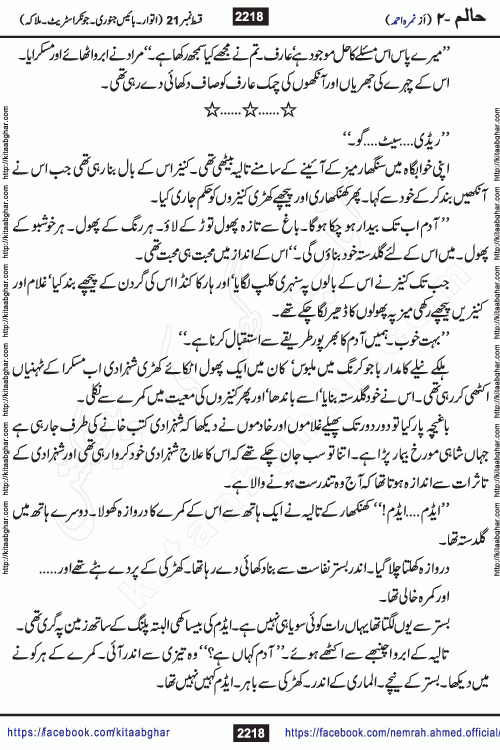 حالم -۲ (از نمرہ احمد) 2218 قسط نمبر 21 (اتوار۔بائیس جنوری۔جونکر اسٹریٹ۔ملاکہ)
’’میرے پاس اس مسئلے کا حل موجود ہے‘ عارف۔تم نے مجھے کیا سمجھ رکھا ہے۔‘‘ مراد نے ابرو اٹھائے اور مسکرایا۔
اس کے چہرے کی جھریاں اور آنکھوں کی چمک عارف کو صاف دکھائی دے رہی تھی۔
☆......☆......☆
’’ریڈی....سیٹ....گو۔‘‘
اپنی خوابگاہ میں سنگھار میز کے آئینے کے سامنے تالیہ بیٹھی تھی۔ کنیز اس کے بال بنا رہی تھی جب اس نے
آنکھیں بند کر کے خود سے کہا۔ پھر کھنکھاری اور پیچھے کھڑی کنیزوں کو حکم جاری کیا۔
’’آدم اب تک بیدار ہو چکا ہوگا۔ باغ سے تازہ پھول توڑ کے لاؤ۔ ہر رنگ کے پھول۔ ہر خوشبو کے
پھول۔ میں اس کے لئے گلدستہ خود بناؤں گی۔‘‘ اس کے انداز میں محبت ہی محبت تھی۔
جب تک کنیز نے اس کے بالوں پہ سنہری کلپ لگایا‘ اور ہار کا کنڈا اس کی گردن کے پیچھے بند کیا‘ غلام اور
کنیزیں پیچھے رکھی میز پہ پھولوں کا ڈھیر لگا چکے تھے۔
’’بہت خوب۔ ہمیں آدم کا بھر پور طریقے سے استقبال کرنا ہے۔‘‘
ہلکے نیلے کامدار باجو کرنگ میں ملبوس‘ کان میں ایک پھول اٹکائے کھڑی شہزادی اب مسکرا کے ٹہنیاں
اکٹھی کر رہی تھی۔ اس نے خود گلدستہ بنایا‘ اسے باندھا‘ اور پھر کنیزوں کی معیت میں کمرے سے نکلی۔
باغیچہ پار کیا تو دور دور تک پھیلے غلاموں اور خادموں نے دیکھا کہ شہزادی کتب خانے کی طرف جا رہی ہے
جہاں شاہی مورخ بیمار پڑا ہے۔ اتنا تو سب جان چکے تھے کہ اس کا علاج شہزادی خود کروا رہی تھی اور شہزادی کے
تاثرات سے اندازہ ہوتا تھا کہ آج وہ تندرست ہونے والا ہے۔
’’ایڈم....ایڈم!‘‘ کھنکھار کے تالیہ نے ایک ہاتھ سے اس کے کمرے کا دروازہ کھولا۔ دوسرے ہاتھ میں
گلدستہ تھا۔
دروازہ کھلتا چلا گیا۔ اندر بستر نفاست سے بنا دکھائی دے رہا تھا۔ کھڑکی کے پردے ہٹے تھے اور......
اور کمرہ خالی تھا۔
بستر سے یوں لگتا تھا یہاں رات کوئی سویا ہی نہیں ہے۔ ایڈم کی بیساکھی البتہ پلنگ کے ساتھ زمین پہ گری تھی۔
تالیہ کے ابرو اچنبھے سے اکٹھے ہوئے۔ ’’آدم کہاں ہے؟‘‘ وہ تیزی سے اندر آئی۔ کمرے کے ہر کونے
میں دیکھا۔ بستر کے نیچے۔ الماری کے اندر۔ کھڑکی سے باہر۔ ایڈم کہیں نہیں تھا۔
https://facebook.com/kitaabghar 2218 https://facebook.com/nemrah.ahmed.official/